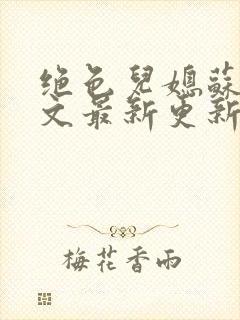 绝色兒媳蘇
文最新更新
梅花香雨